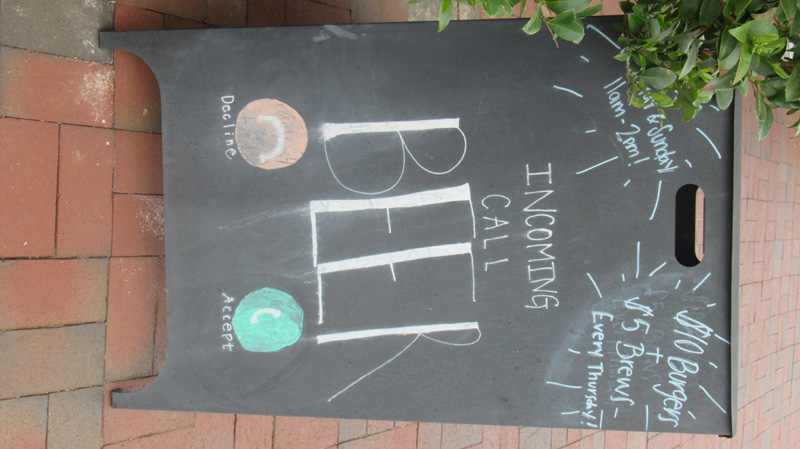 & Sunday
11am-2pm!
$10 Burgers
+
$5 Brews-
Every Thursday!
INCOMING
CALL
BEER
Decline
Accept